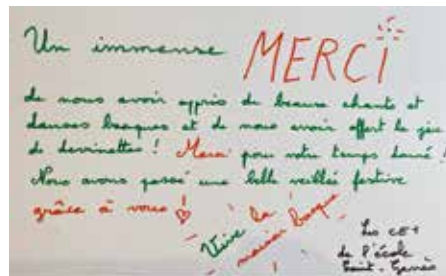 Un immense MERCI
de nous avoir appris de beaux chants et
danses basques et de nous avoir offert le jeu
de devinettes ! Merci pour votre temps donné !
Nous avons passé une belle veillée festive
grâce à vous !
Vive la
maison basque
Les CE1
de l'école
Saint-